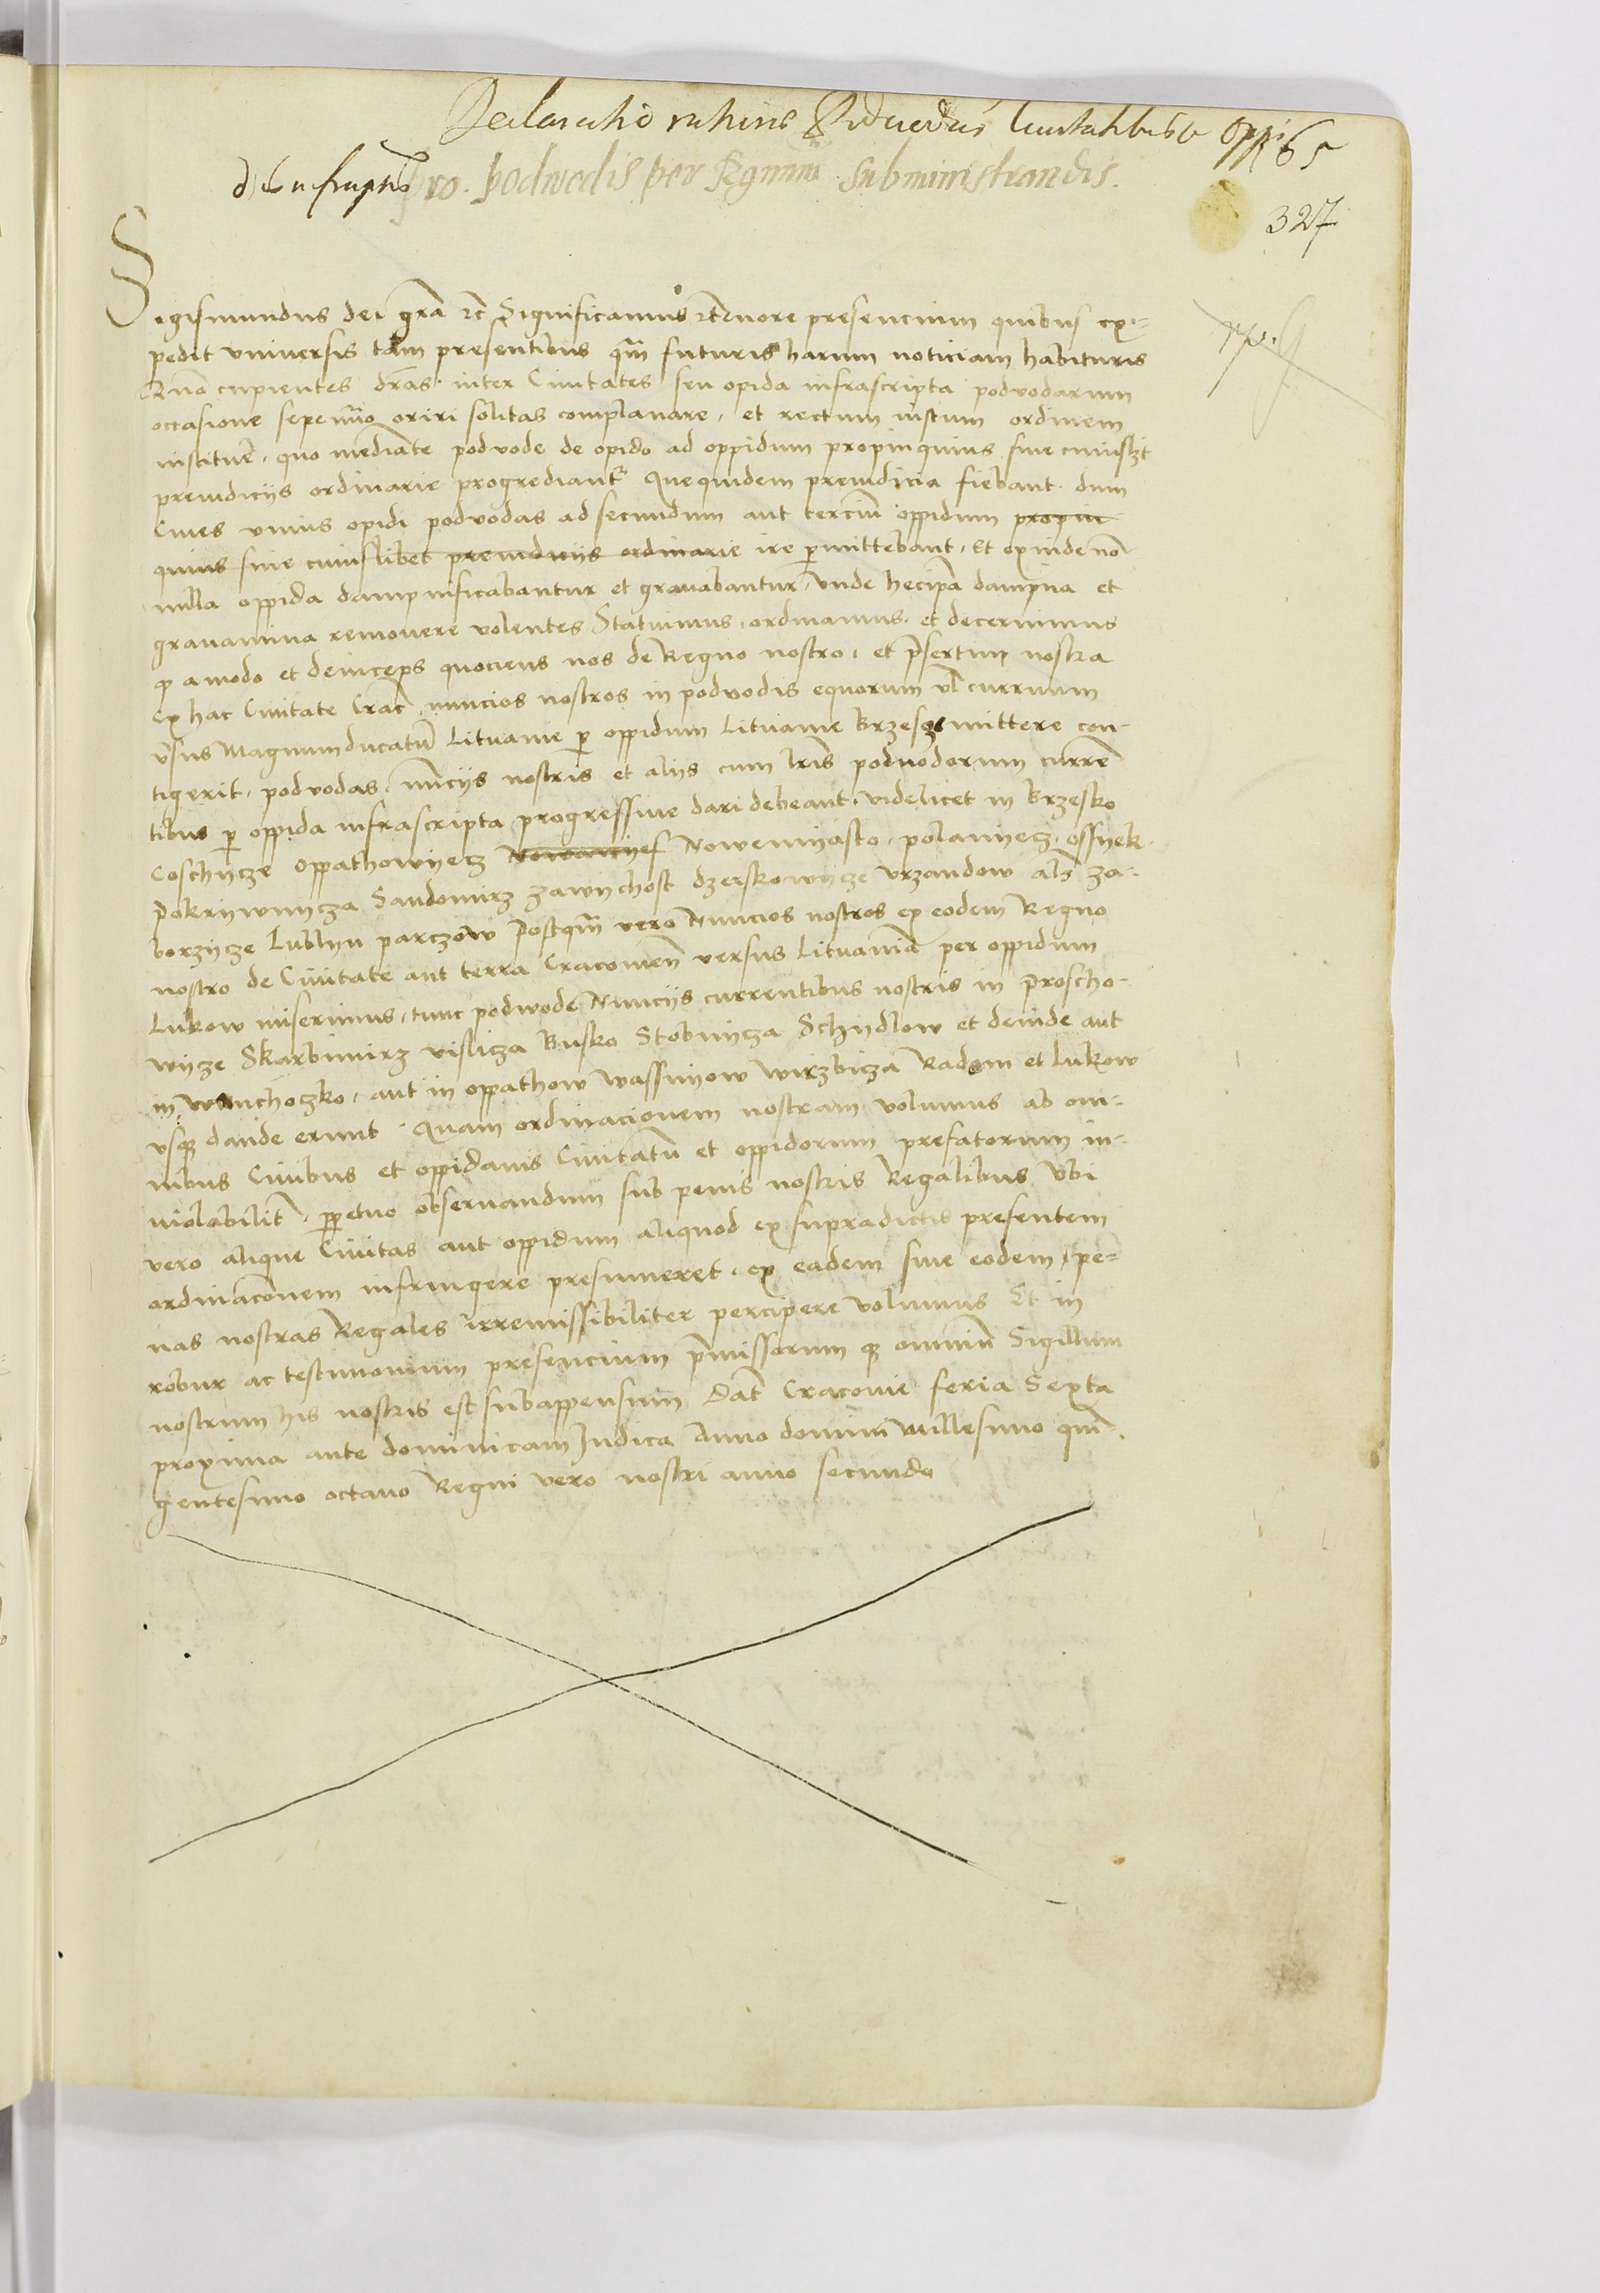 Declaratio ratione Podwodis Civitatibus et Oppi
65
dis infrascriptis
pro podwodis per Regnum subministrandis.
327
Sigismundus dei gra etc Significamus tenore presencium quibus ex-
pedit universis tam presentibus qm futuris harum noticiam habituris
Quo cupientes dras inter Civitates seu opida infrascripta podvodarum
occasione sepenuo oriri solitas complanare, et rectum iustum ordinem
instituere, quo mediante podvode de opido ad oppidum propinquius sine cuiuslzt
preiudicijs ordinarie progrediantr Que quidem preiudicia fiebant dum
Cives unius opidi podvodas ad secundum aut tercium oppidum propin
quius sine cuiuslibet preiudicijs ordinarie ire permittebant, Et exinde non
nulla oppida dampnificabantur et gravabantur, unde hec ipa dampna et
gravamina removere volentes Statuimus, ordinamus, et decernimus
q amodo et deinceps quociens nos de Regno nostro, et presertim nostra
ex hac Civitate Crac nuncios nostros in podvodis equorum vl curruum
vsus Magnum ducatum Lituanie per oppidum Lituanie Brzesze mittere con-
tigerit, podvodas, nuncijs nostris et alijs cum lris podvodarum curren
tibus per oppida infrascripta progressive dari debeant, videlicet in Brzesko
Coschycze Oppathowyecz Nowemyasto, polanyecz, ossyek
Pokrzywnycza Sandomirz zawychost dzerskowycze Vrzandow als za-
borzycze Lublyn parczow Postqm vero Nuncios nostros ex eodem Regno
nostro de Civitate aut terra Cracovien versus Lituaniam per oppidum
Lukow miserimus, tunc podwode Nuncijs currentibus nostris in Proscho-
wyze Skarbimirz vislicza Busko Stobnycza Schydlow et deinde aut
in Wanchoczko, aut in oppathow Wassnyow Wirzbicza Radom et Lukow
vsque dande erunt. Quam ordinacionem nostram volumus ab om-
nibus Civibus et oppidanis Civitatum et oppidorum prefatorum in-
violabilit, ppetuo observandum sub penis nostris Regalibus Ubi
vero alique Civitas aut oppidum aliquod ex supradictis presentem
ordinaconem infringere presumeret, ex eadem sive eodem, pe-
nas nostras Regales irremissibiliter percipere volumus Et in
robur ac testimonium presencium pmissorum q omnium Sigillum
nostrum his nostris est subappensum Dat Cracovie feria Sexta
proxima ante dominicam Judica Anno domini millesimo quin
gentesimo octavo Regni vero nostri anno secundo